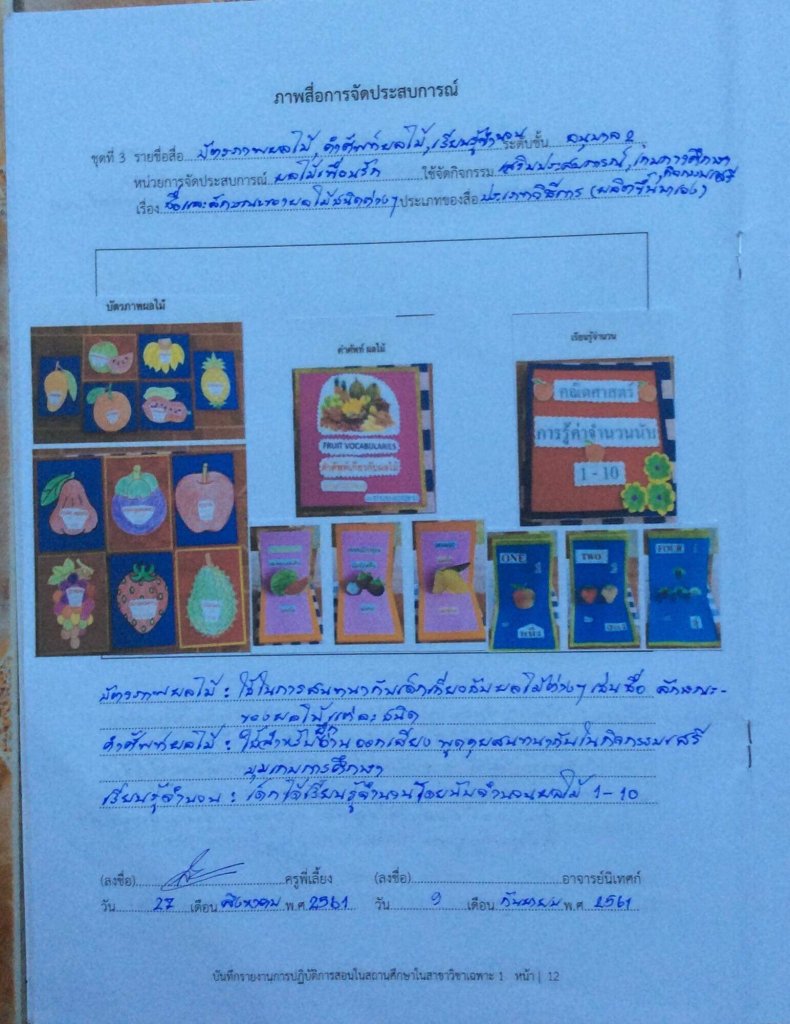 ภาพสื่อการจัดประสบการณ์
ชุดที่ 3 รายชื่อสื่อ บัตรภาพผลไม้, คำศัพท์ผลไม้, เรียนรู้จำนวน ระดับชั้น อนุบาล 2
หน่วยการจัดประสบการณ์ ผลไม้เพื่อนรัก ใช้จัดกิจกรรม เสริมประสบการณ์, เกมการศึกษา
กิจกรรมเสรี
เรื่อง ชื่อและลักษณะของผลไม้ชนิดต่างๆ ประเภทของสื่อ ประเภทวิธีการ (ผลิตขึ้นมาเอง)
บัตรภาพผลไม้
คำศัพท์ ผลไม้
เรียนรู้จำนวน
FRUIT VOCABULARIES
คำศัพท์เกี่ยวกับผลไม้
คณิตศาสตร์
การรู้ค่าจำนวนนับ
1 - 10
ONE 1
หนึ่ง
TWO 2
สอง
FOUR 4
สี่
บัตรภาพผลไม้ : ใช้ในการสนทนากับเด็กเกี่ยวกับผลไม้ต่างๆ เช่น ชื่อ ลักษณะ-
ของผลไม้แต่ละชนิด
คำศัพท์ผลไม้ : ใช้สำหรับฝึกอ่านออกเสียง พูดคุยสนทนากันในกิจกรรมเสรี
มุมเกมการศึกษา
เรียนรู้จำนวน : เด็กได้เรียนรู้จำนวนโดยนับจำนวนผลไม้ 1-10
(ลงชื่อ) ครูพี่เลี้ยง (ลงชื่อ) อาจารย์นิเทศก์
วัน 27 เดือน สิงหาคม พ.ศ. 2561 วัน 9 เดือน กันยายน พ.ศ. 2561
บันทึกรายงานการปฏิบัติการสอนในสถานศึกษาในสาขาวิชาเฉพาะ 1 หน้า | 12